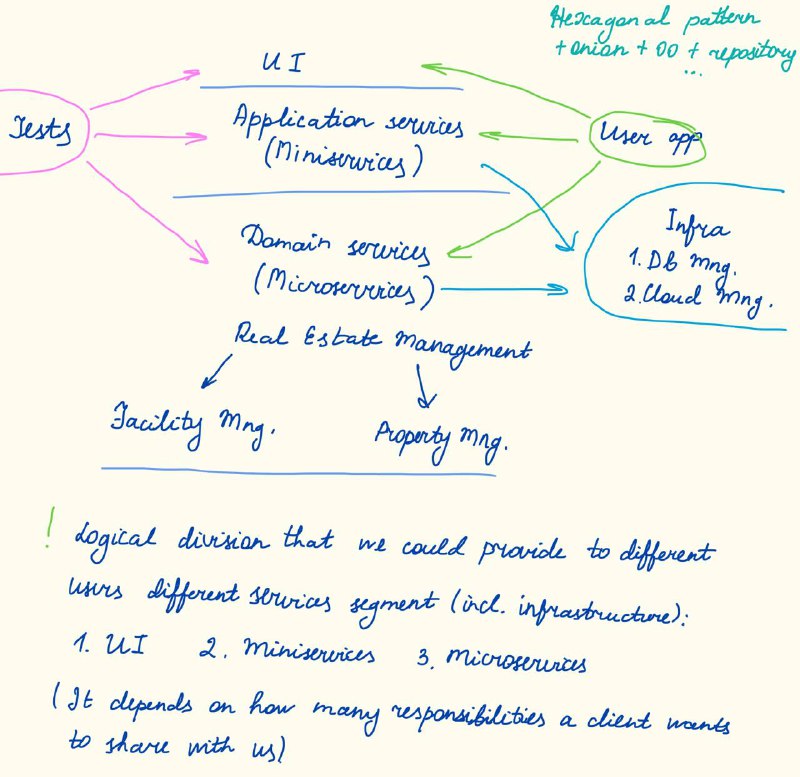 Hexagonal pattern
+ onion + OO + repository
...
UI
Tests
Application services
(Miniservices)
User app
Domain services
(Microservices)
Infra
1. Db Mng.
2. Cloud Mng.
Real Estate Management
Facility Mng.
Property Mng.
! Logical division that we could provide to different
users different services segment (incl. infrastructure):
1. UI 2. Miniservices 3. Microservices
(It depends on how many responsibilities a client wants
to share with us)